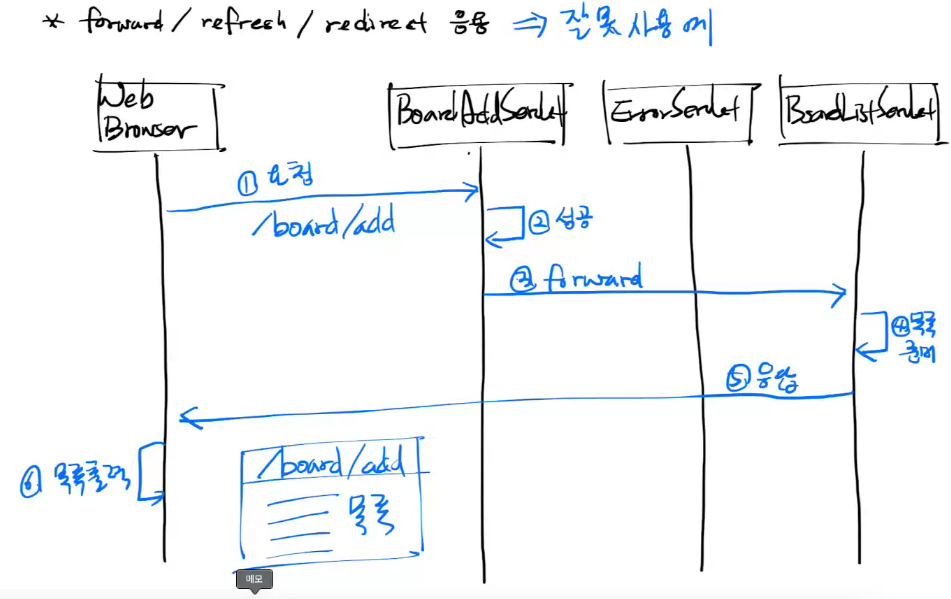 * forward / refresh / redirect 응용 ⇒ 잘못 사용 예
Web
Browser
BoardAddServlet
ErrorServlet
BoardListServlet
① 요청
/board/add
② 성공
③ forward
④ 목록
준비
⑤ 응답
⑥ 목록출력
/board/add
목록
메모